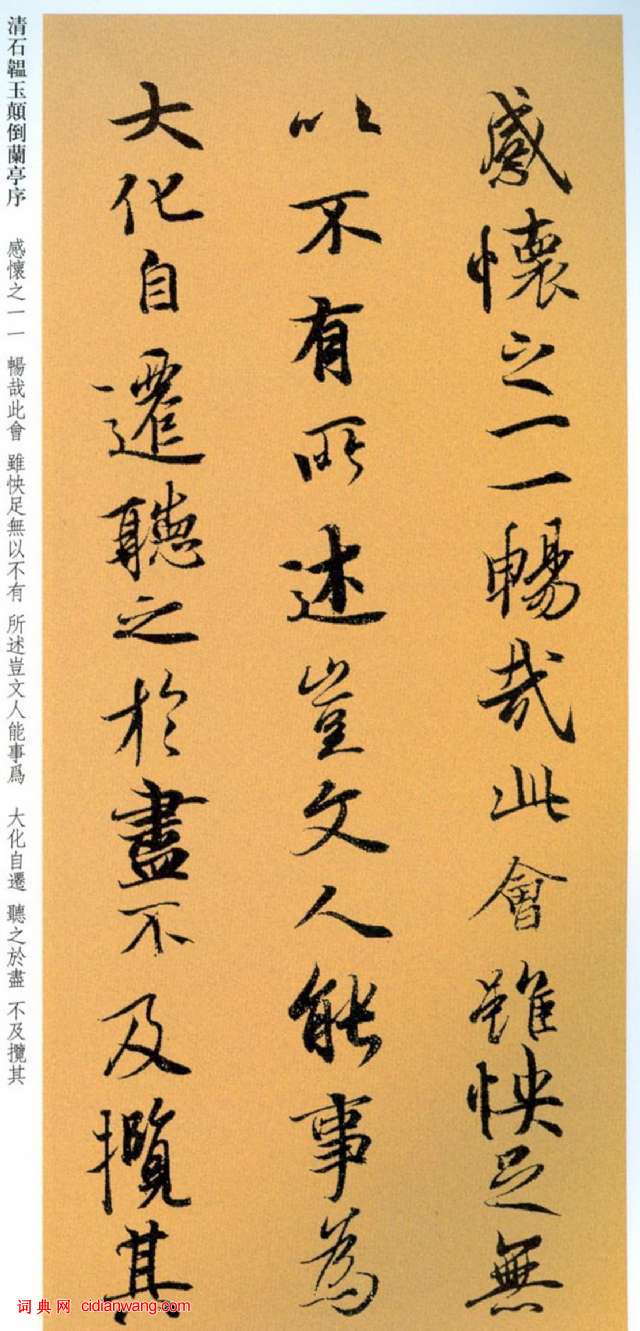 感懷之一一暢哉此會雖怏足無
以不有所述豈文人能事為
大化自遷聽之於盡不及攬其
清石韞玉顛倒蘭亭序 感懷之一一 暢哉此會 雖怏足無以不有 所述豈文人能事爲 大化自遷 聽之於盡 不及攬其
词典网 cidianwang.com